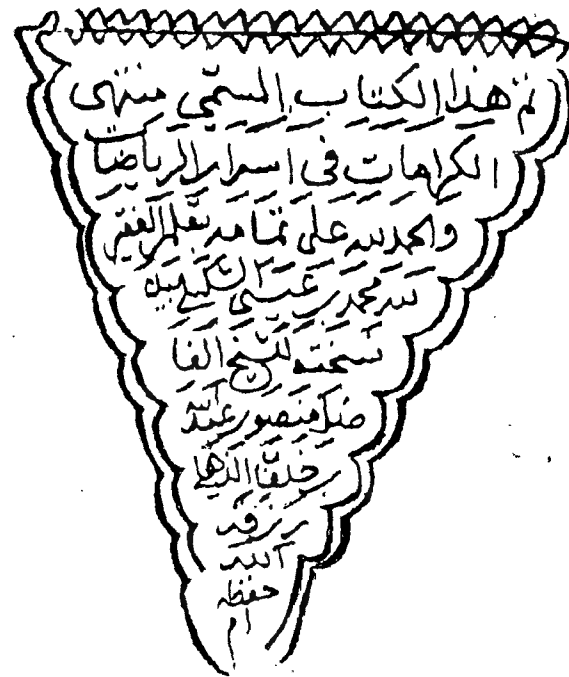 تم هذا الكتاب المسمى منتهى
الكرامات في اسرار الرياضات
والحمد لله على تمامه بقلم الفقير
لله محمد بن عيسى
نسخته للشيخ الفا
ضل منصور عبدالله
بن خلفا
يرزقه
الله
حفظه
ام